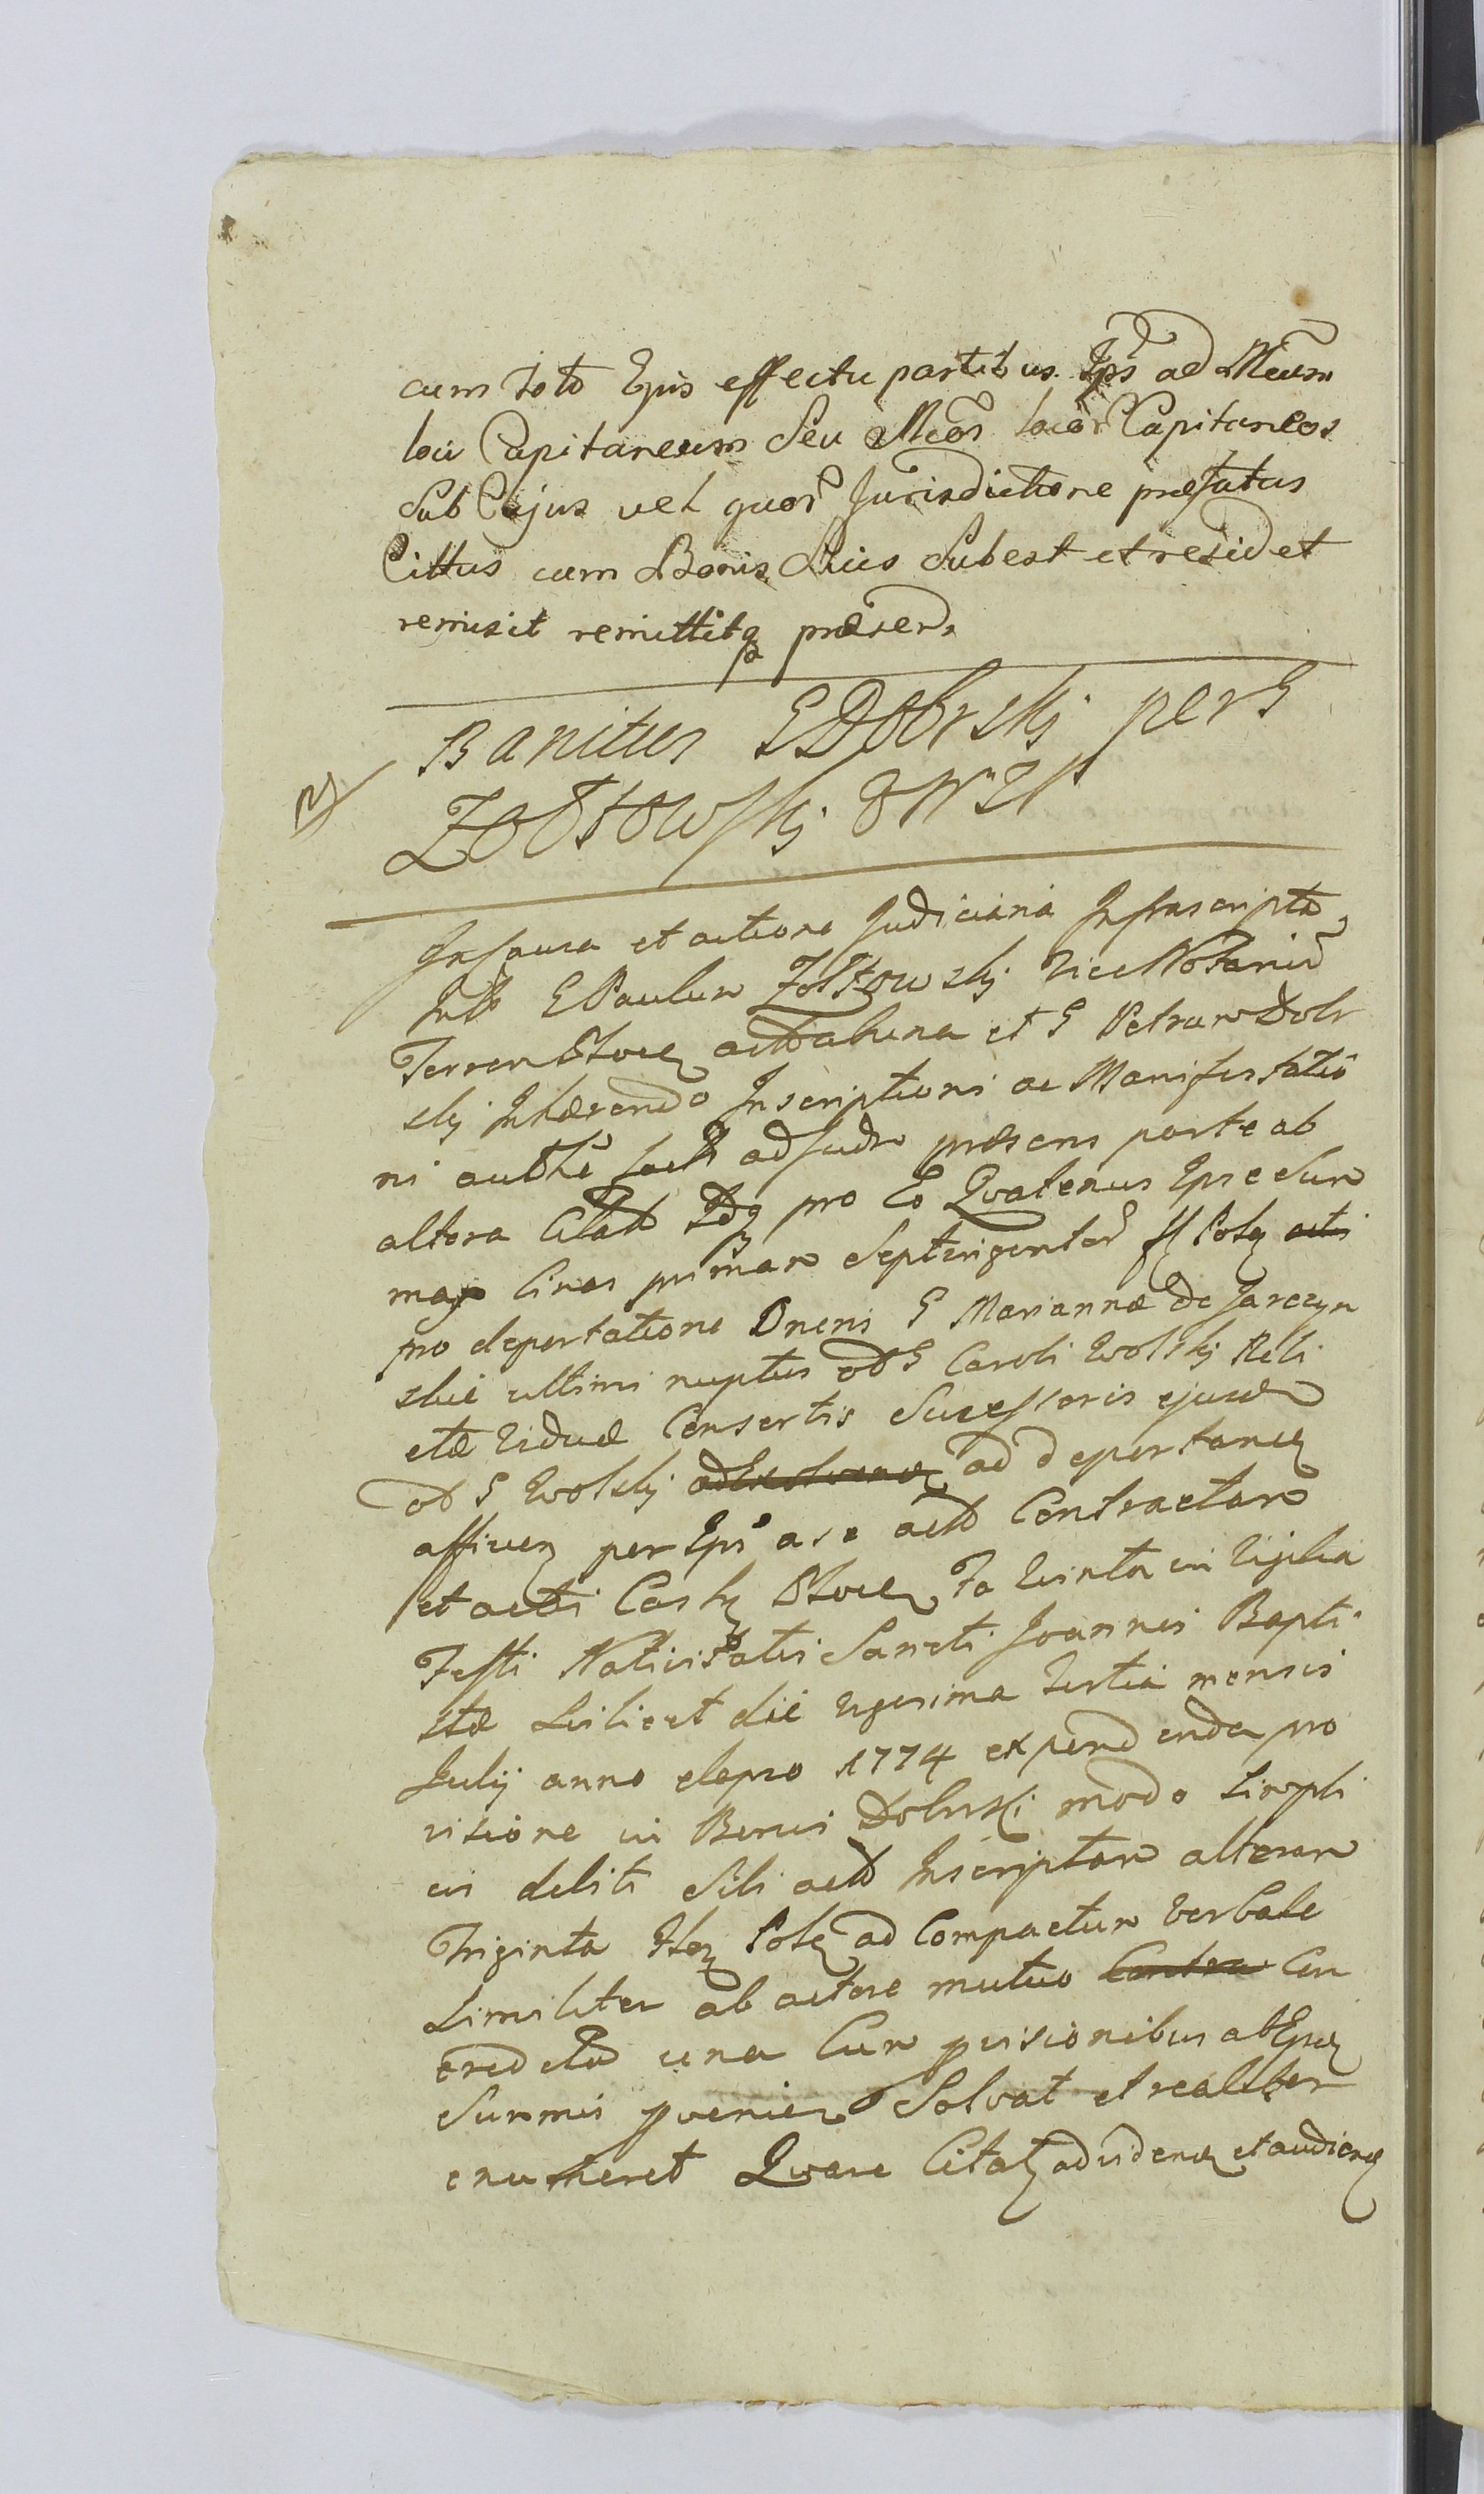 cum toto Ejus effectu partibus Ips ad Meum
loci Capitaneum Seu Meos locor Capitaneos
Sub Cujus vel quor Jurisdictione præfatus
Cittus cum Bonis Suis Subest et residet
remisit remittitq præsen.
Banitus G Dobrskj per G
Zołtowskj
In Causa et actione Judiciaria Infrascripta
Int G Paulum Zołtowskj Vice Notariu
Terren Ploceñ et G Petrum Dobr
skj Inhærendo Inscriptioni ac Manifestatio
ni authê ad Judm præsens parte ab
altera Citatt pro Eo Quatenus Ipse Sum
mas binas primam Septingentor fl Polɞ
pro deportatione Dneni G Mariannæ de Jarczyn
skie ultimi nuptus G Caroli Wolskj Reli
ctæ Viduæ Consortis Successoris ejusd
G Wolskj ad deportanɞ
per Ips a se Contractam
et Ploceñ in Vigilia
Festi Nativitatis Sancti Joannis Bapti
stæ Scilicet die Vigesima tertia mensis
Julij anno elapso 1774 expendenda pro
visione in Bonis Dobrski modo Simpli
cis debiti Sibi Inscriptam alteram
Triginta Polɞ ad Compactum Verbale
Similiter ab actore mutuo Contra Con
una Cum pvisionibus ab Ipsis
Summis pvenien Solvat et realiter
enumeret Quare Citatɞ ad videnɞ et audienɞ